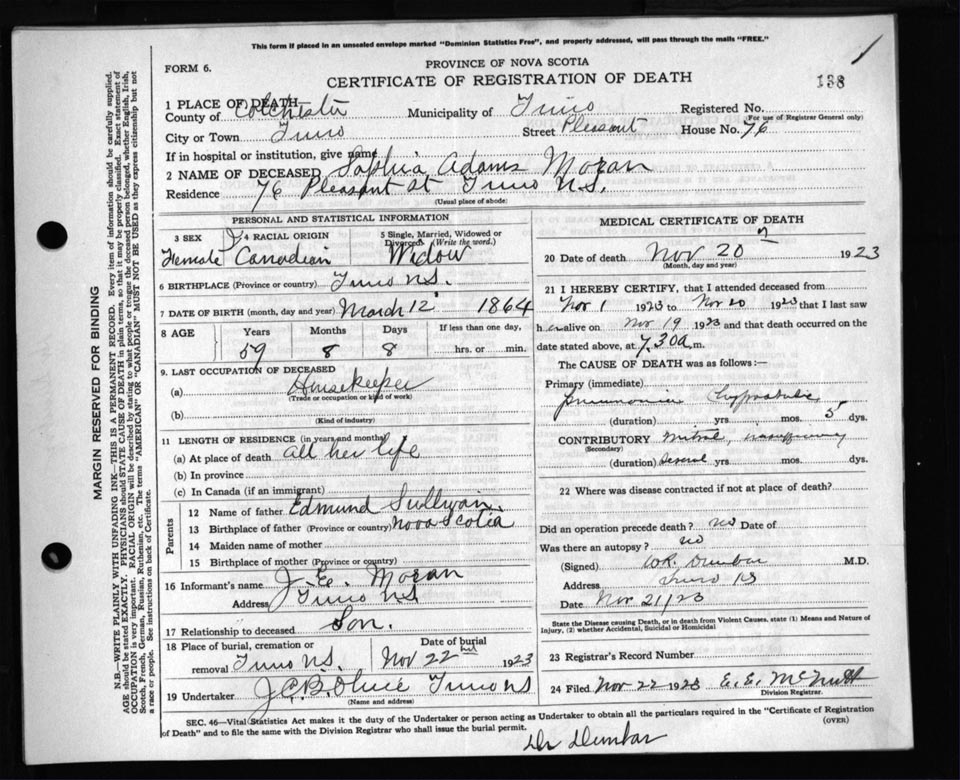 This form if placed in an unsealed envelope marked "Dominion Statistics Free", and properly addressed, will pass through the mails "FREE."
FORM 6.
PROVINCE OF NOVA SCOTIA
CERTIFICATE OF REGISTRATION OF DEATH
138
1 PLACE OF DEATH
County of Colchester Municipality of Truro Registered No.
(For use of Registrar General only)
City or Town Truro Street Pleasant House No. 76
If in hospital or institution, give name
2 NAME OF DECEASED Sophia Adams Moran
Residence 76 Pleasant St Truro N.S.
(Usual place of abode)
PERSONAL AND STATISTICAL INFORMATION
3 SEX 4 RACIAL ORIGIN 5 Single, Married, Widowed or Divorced (Write the word.)
Female Canadian Widow
6 BIRTHPLACE (Province or country) Truro N.S.
7 DATE OF BIRTH (month, day and year) March 12 1864
8 AGE Years Months Days If less than one day,
59 8 8 hrs. or min.
9. LAST OCCUPATION OF DECEASED
(a) Housekeeper
(Trade or occupation or kind of work)
(b)
(Kind of industry)
11 LENGTH OF RESIDENCE (in years and months)
(a) At place of death all her life
(b) In province
(c) In Canada (if an immigrant)
Parents
12 Name of father Edmund Sullivan
13 Birthplace of father (Province or country) Nova Scotia
14 Maiden name of mother
15 Birthplace of mother (Province or country)
16 Informant's name J. E. Moran
Address Truro N.S
17 Relationship to deceased Son.
18 Place of burial, cremation or removal Truro N.S. Date of burial Nov 22nd 1923
19 Undertaker Truro N S
(Name and address)
MEDICAL CERTIFICATE OF DEATH
20 Date of death Nov 20 1923
(Month, day and year)
21 I HEREBY CERTIFY, that I attended deceased from
Nov 1 1923 to Nov 20 1923 that I last saw
her alive on Nov 19 1923 and that death occurred on
date stated above, at 7.30a.m.
The CAUSE OF DEATH was as follows:—
Primary (immediate)
pneumonia hypostatic
(duration) yrs. mos. 5 dys.
CONTRIBUTORY mitral insufficiency
(Secondary)
(duration) Several yrs mos. dys.
22 Where was disease contracted if not at place of death?
Did an operation precede death? no Date of
Was there an autopsy? no
(Signed) Dunbar M.D.
Address Truro NS
Date Nov 21/23
State the Disease causing Death, or in death from Violent Causes, state (1) Means and Nature of
Injury, (2) whether Accidental, Suicidal or Homicidal
23 Registrar's Record Number
24 Filed Nov 22 1923 E. E. McNutt
Division Registrar.
SEC. 46—Vital Statistics Act makes it the duty of the Undertaker or person acting as Undertaker to obtain all the particulars required in the "Certificate of Registration
of Death" and to file the same with the Division Registrar who shall issue the burial permit.
(OVER)
Dr Dunbar
MARGIN RESERVED FOR BINDING
N.B.—WRITE PLAINLY WITH UNFADING INK—THIS IS A PERMANENT RECORD. Every item of information should be carefully supplied.
AGE should be stated EXACTLY. PHYSICIANS should STATE CAUSE OF DEATH in plain terms, so that it may be properly classified. Exact statement of
OCCUPATION is very important. RACIAL ORIGIN will be described by stating to what people or tongue the deceased person belonged, whether English, Irish,
Scotch, French, German, Russian, Ruthenian, etc. The terms "AMERICAN" OR "CANADIAN" MUST NOT BE USED as they express citizenship but not
a race or people. See instructions on back of Certificate.